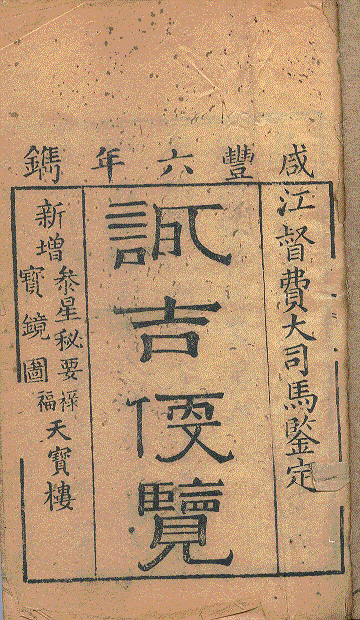 咸豐六年鐫
江督費大司馬鑒定
諏吉便覽
新增
參星秘要
寶鏡圖
福祿
天寶樓